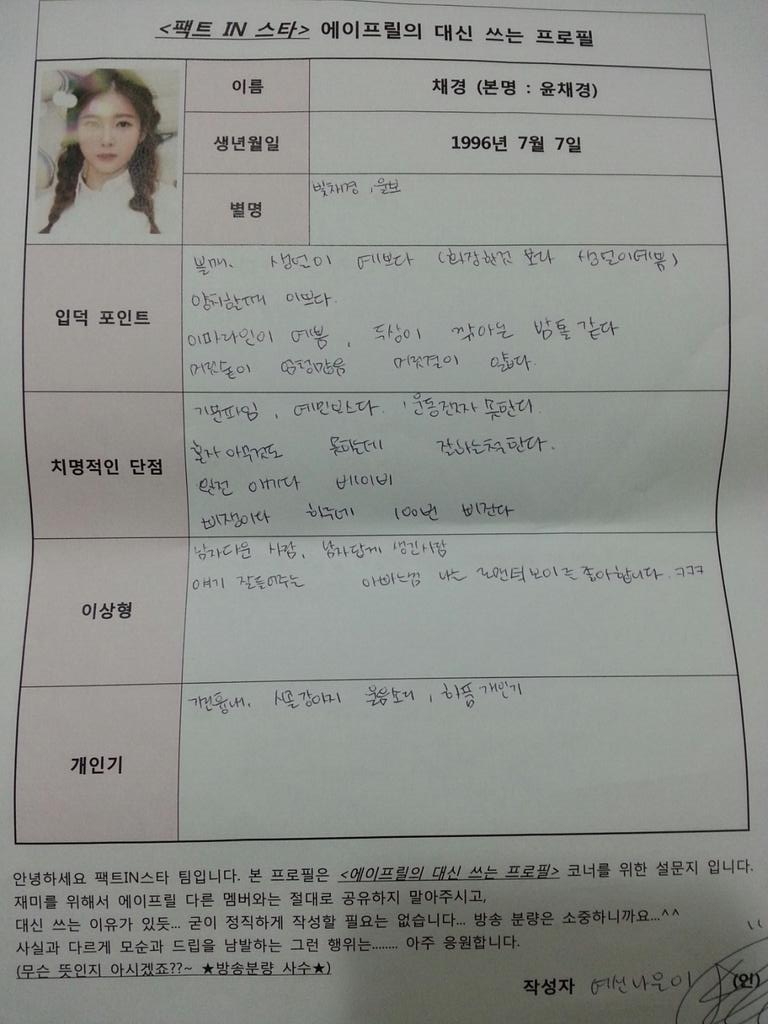 <팩트 IN 스타> 에이프릴의 대신 쓰는 프로필
이름
채경 (본명 : 윤채경)
생년월일
1996년 7월 7일
별명
빛채경, 울보
입덕 포인트
볼매. 생얼이 예쁘다 (화장한것 보다 생얼이예쁨)
양치할때 이쁘다.
이마라인이 예쁨, 두상이 깎아논 밤톨 같다
머릿결이 얇다.
치명적인 단점
기분파임, 예민보스다. 운동진짜 못한다.
혼자 아무것도 못하는데 잘하는척한다.
완전 애기다 베이비
삐쟁이다 하루에 100번 삐진다
이상형
남자다운 사람, 남자답게 생긴사람
얘기 잘들어주는 아빠느낌 나는 로맨틱보이를 좋아합니다. ㅋㅋㅋ
개인기
시골강아지 울음소리, 하품 개인기
안녕하세요 팩트IN스타 팀입니다. 본 프로필은 <에이프릴의 대신 쓰는 프로필> 코너를 위한 설문지 입니다.
재미를 위해서 에이프릴 다른 멤버와는 절대로 공유하지 말아주시고,
대신 쓰는 이유가 있듯... 굳이 정직하게 작성할 필요는 없습니다... 방송 분량은 소중하니까요...^^
사실과 다르게 모순과 드립을 남발하는 그런 행위는........ 아주 응원합니다.
(무슨 뜻인지 아시겠죠??~ ★방송분량 사수★)
작성자 예쁜나은이 (인)